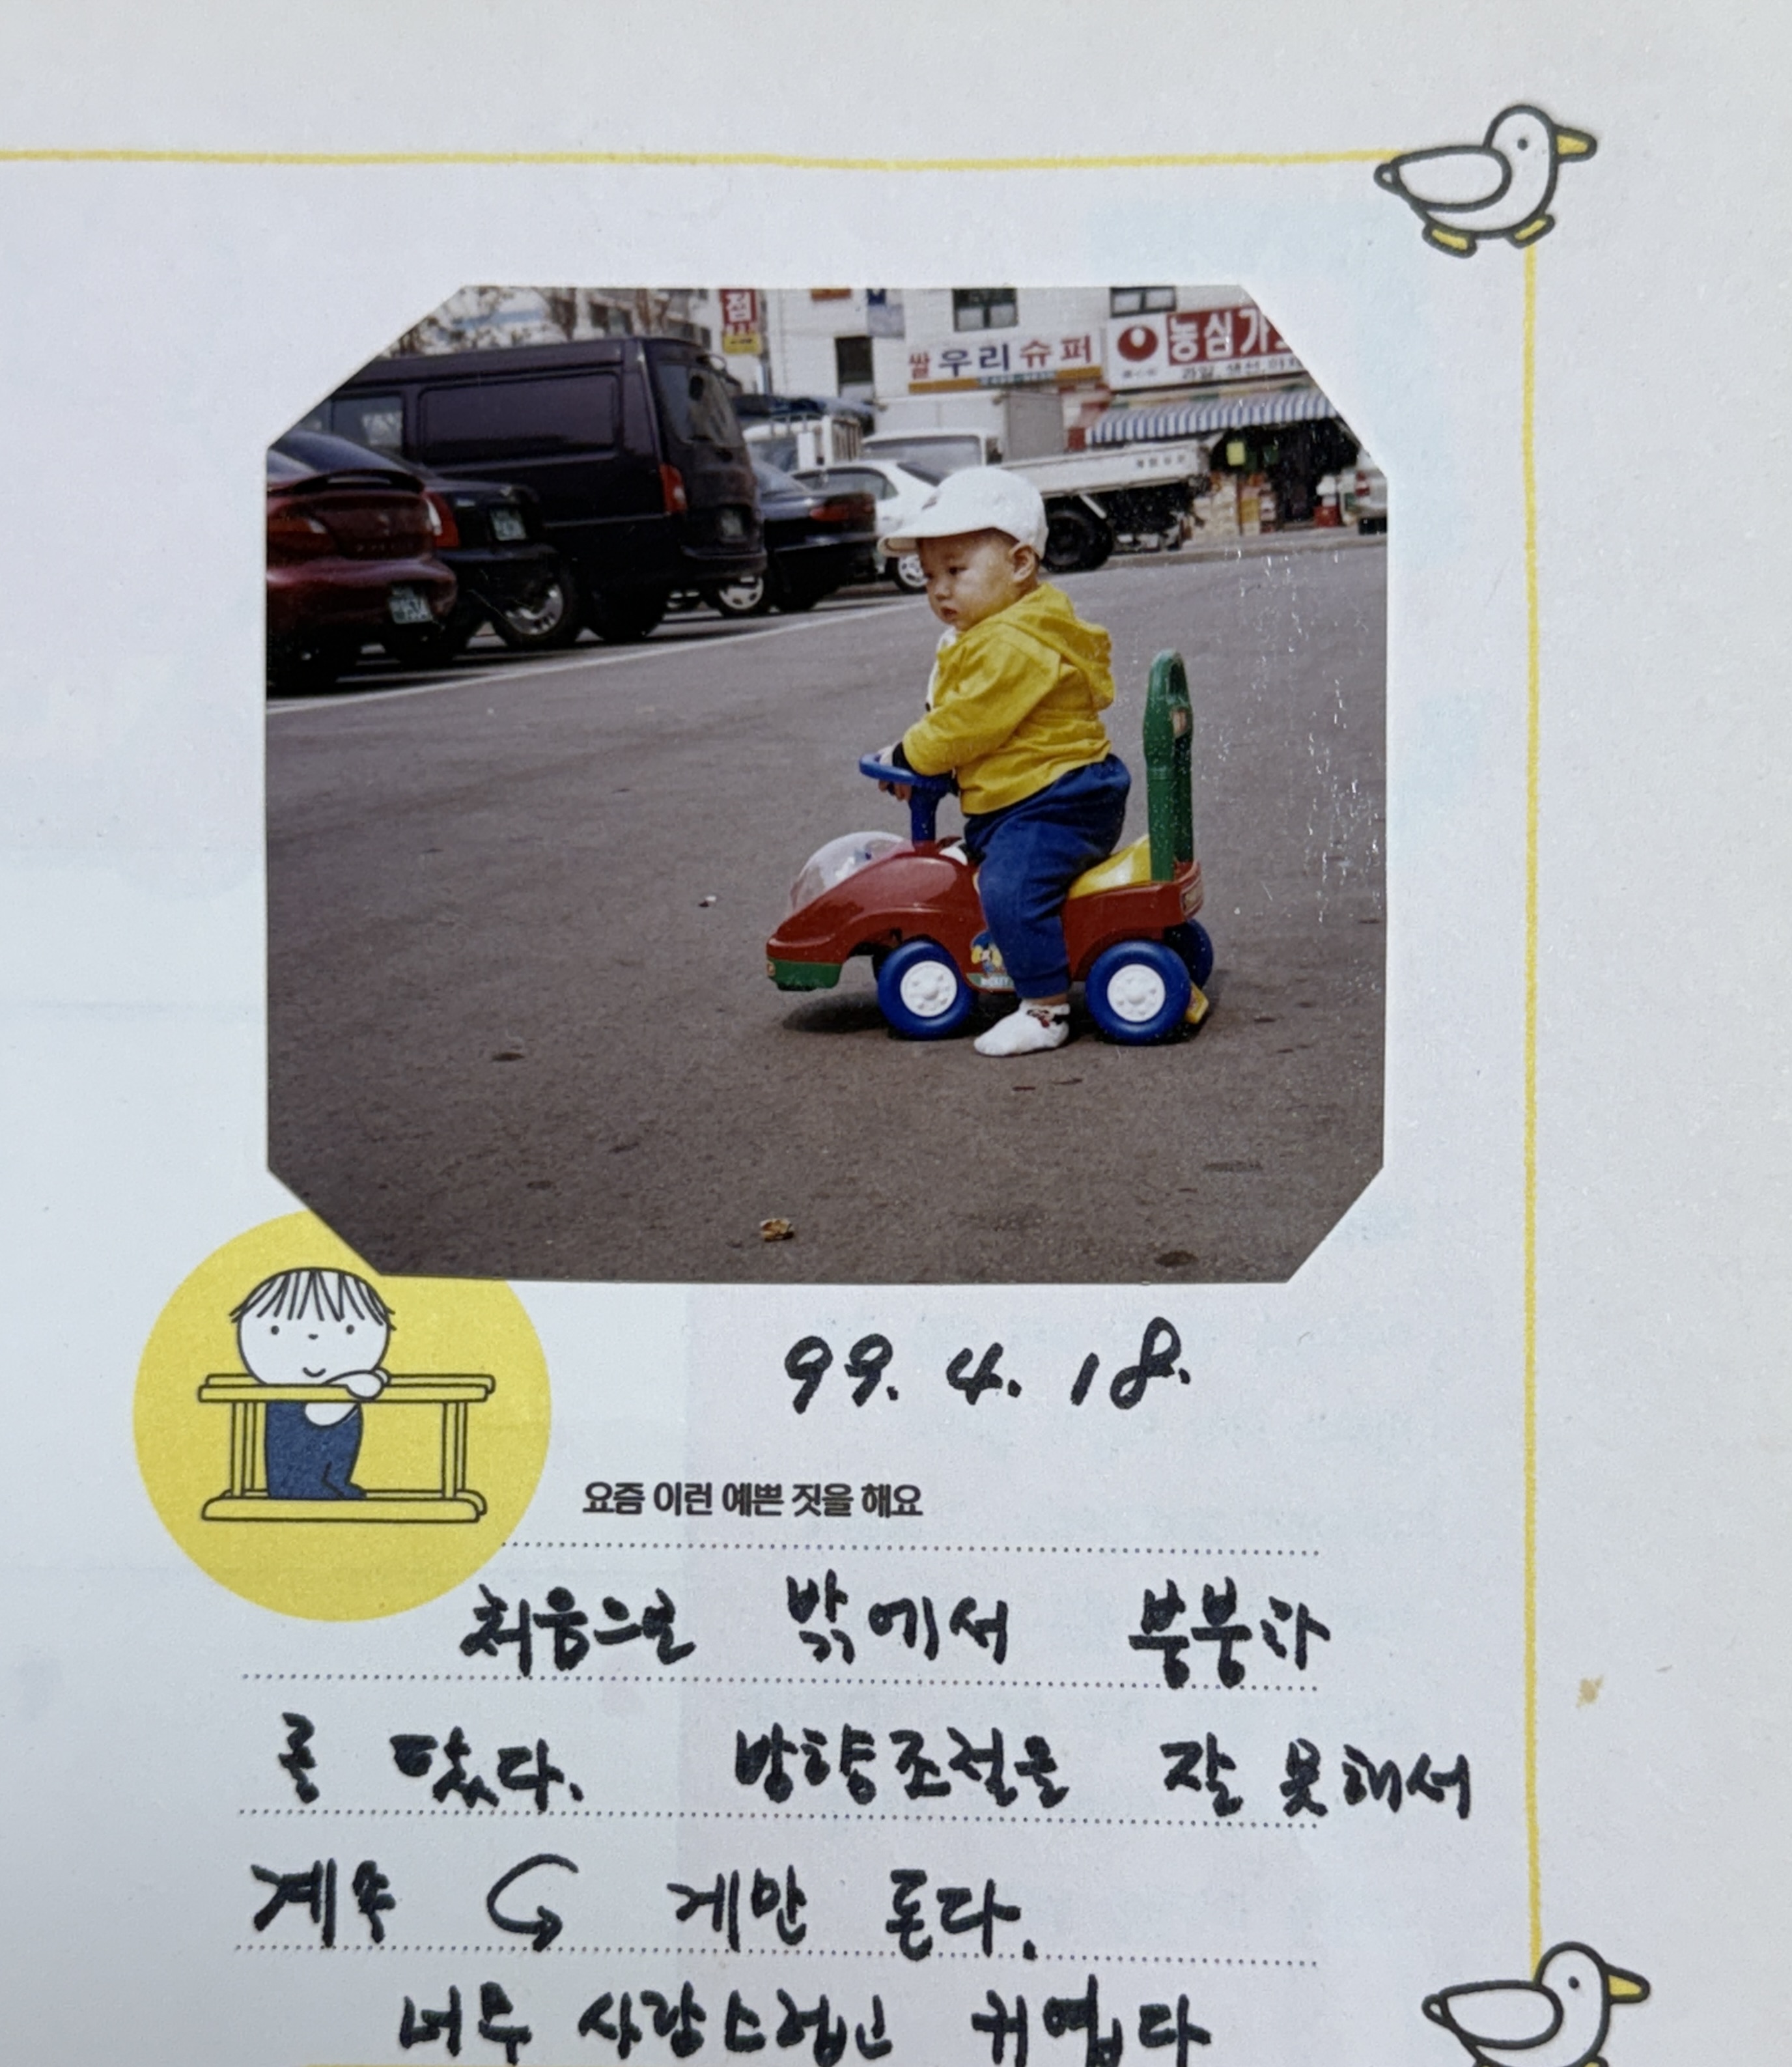 점
쌀 우리슈퍼
농심가
과일, 생선, 야채
99. 4. 18.
요즘 이런 예쁜 짓을 해요
처음으로 밖에서 붕붕카
를 탔다. 방향조절을 잘 못해서
계속 게만 돈다.
너무 사랑스럽고 귀엽다